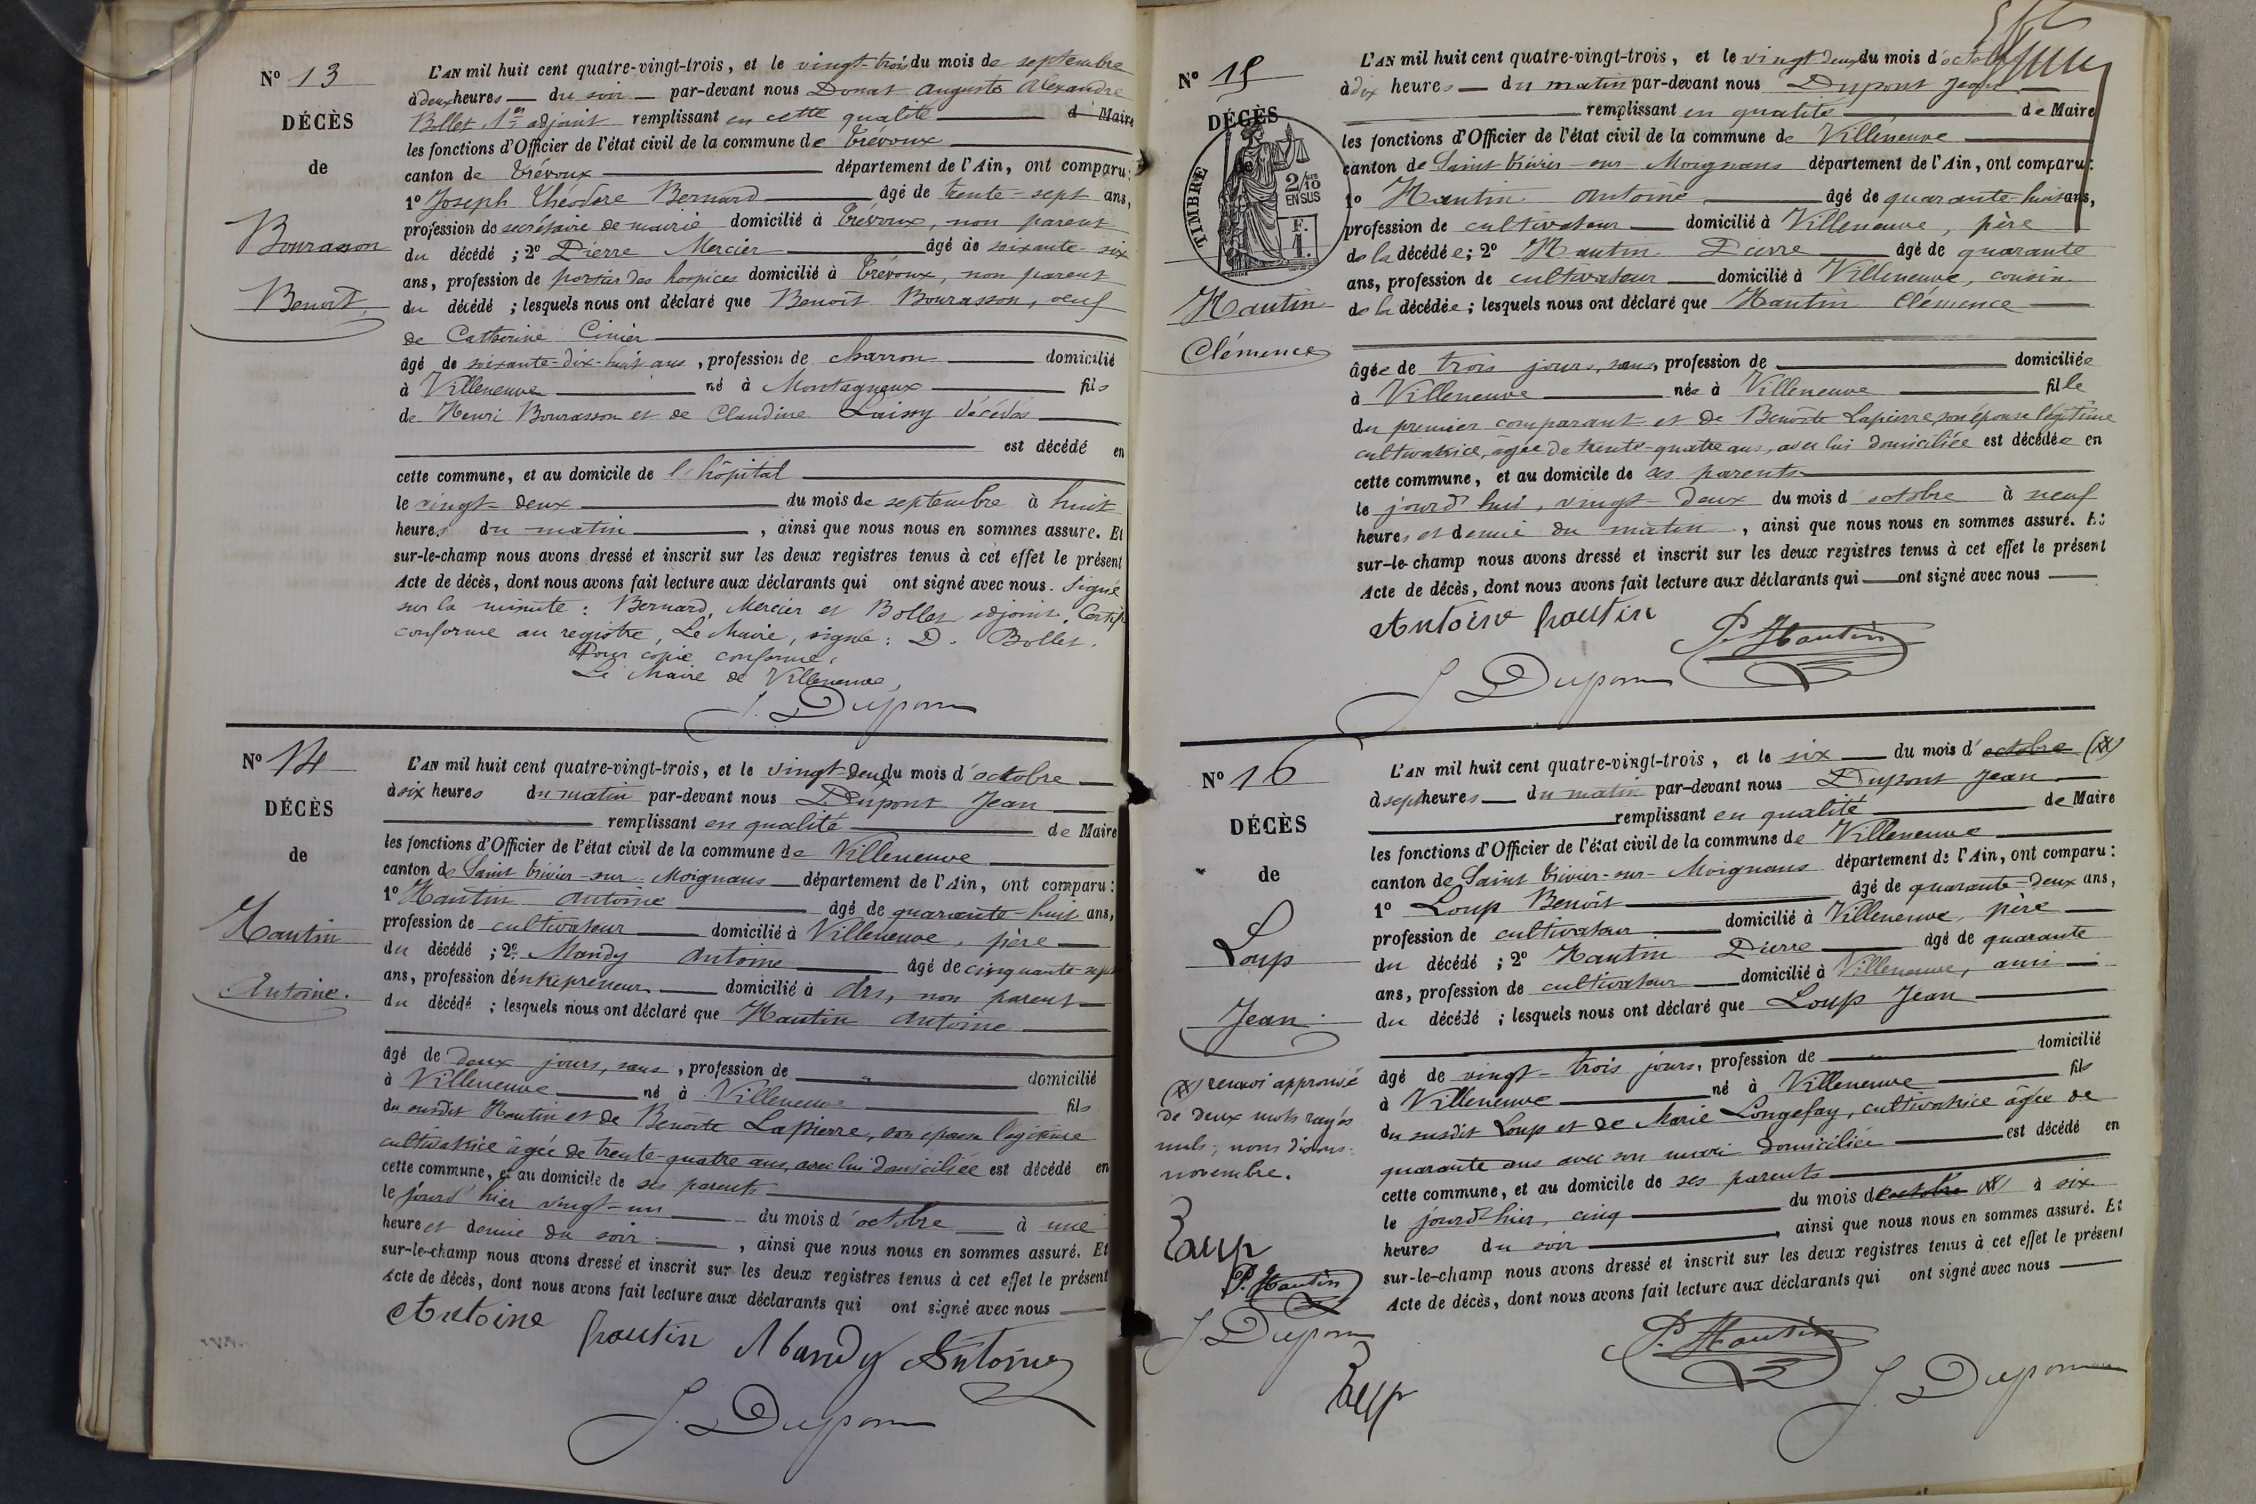 N° 13
DÉCÈS
de
Bourasson
Benoît
L'AN mil huit cent quatre-vingt-trois, et le vingt-trois du mois de septembre
à deux heures du soir par-devant nous Donat Auguste Alexandre
Bollet 1er adjoint remplissant en cette qualité d Maire
les fonctions d'Officier de l'état civil de la commune de Trévoux
canton de Trévoux département de l'Ain, ont comparu :
1° Joseph Théodore Bernard âgé de trente-sept ans,
profession de secrétaire de mairie domicilié à Trévoux, non parent
du décédé ; 2° Pierre Mercier âgé de soixante-six
ans, profession de portier des hospices domicilié à Trévoux, non parent
du décédé ; lesquels nous ont déclaré que Benoît Bourasson, veuf
de Catherine Cinier
âgé de soixante-dix-huit ans, profession de charron domicilié
à Villeneuve né à Montagneux fils
de Henri Bourasson et de Claudine Laissy décédés
est décédé en
cette commune, et au domicile de l'hôpital
le vingt-deux du mois de septembre à huit
heures du matin, ainsi que nous nous en sommes assuré. Et
sur-le-champ nous avons dressé et inscrit sur les deux registres tenus à cet effet le présent
Acte de décès, dont nous avons fait lecture aux déclarants qui ont signé avec nous. Signé
sur la minute : Bernard, Mercier et Bollet adjoint. Certifié
conforme au registre, Le Maire, signé : D. Bollet.
Pour copie conforme,
Le Maire de Villeneuve,
J. Dupont
N° 14
DÉCÈS
de
Hautin
Antoine.
L'AN mil huit cent quatre-vingt-trois, et le vingt-deux du mois d'octobre
à six heures du matin par-devant nous Dupont Jean
remplissant en qualité de Maire
les fonctions d'Officier de l'état civil de la commune de Villeneuve
canton de Saint Trivier-sur-Moignans département de l'Ain, ont comparu :
1° Hautin Antoine âgé de quarante-huit ans,
profession de cultivateur domicilié à Villeneuve, père
du décédé ; 2° Mandy Antoine âgé de cinquante-sept
ans, profession d'entrepreneur domicilié à Ars, non parent
du décédé ; lesquels nous ont déclaré que Hautin Antoine
âgé de deux jours, sans, profession de domicilié
à Villeneuve né à Villeneuve fils
du susdit Hautin et de Benoîte Lapierre, son épouse légitime
cultivatrice âgée de trente-quatre ans, avec lui domiciliée est décédé en
cette commune, et au domicile de ses parents
le jourd'hier vingt-un du mois d'octobre à une
heure et demie du soir, ainsi que nous nous en sommes assuré. Et
sur-le-champ nous avons dressé et inscrit sur les deux registres tenus à cet effet le présent
Acte de décès, dont nous avons fait lecture aux déclarants qui ont signé avec nous
Antoine hautin Mandy Antoine
J. Dupont
N° 15
DÉCÈS
de
TIMBRE
2/10 EN SUS
F. 1.
Hautin
Clémence
L'AN mil huit cent quatre-vingt-trois, et le vingt deux du mois d'octobre
à dix heures du matin par-devant nous Dupont Jean
remplissant en qualité de Maire
les fonctions d'Officier de l'état civil de la commune de Villeneuve
canton de Saint Trivier-sur-Moignans département de l'Ain, ont comparu :
1° Hautin Antoine âgé de quarante-huit ans,
profession de cultivateur domicilié à Villeneuve, père
de la décédée ; 2° Hautin Pierre âgé de quarante
ans, profession de cultivateur domicilié à Villeneuve, cousin
de la décédée ; lesquels nous ont déclaré que Hautin Clémence
âgée de trois jours, sans, profession de domiciliée
à Villeneuve née à Villeneuve fille
du premier comparant et de Benoîte Lapierre, son épouse légitime
cultivatrice, âgée de trente-quatre ans, avec lui domiciliée est décédée en
cette commune, et au domicile de ses parents
le jourd'hui, vingt-deux du mois d'octobre à neuf
heures et demie du matin, ainsi que nous nous en sommes assuré. Et
sur-le-champ nous avons dressé et inscrit sur les deux registres tenus à cet effet le présent
Acte de décès, dont nous avons fait lecture aux déclarants qui ont signé avec nous
Antoine hautin
P. Hautin
J. Dupont
N° 16
DÉCÈS
de
Loup
Jean
(X) renvoi approuvé
de deux mots rayés
nuls ; nous disons :
novembre.
Loup
P. Hautin
J. Dupont
L'AN mil huit cent quatre-vingt-trois, et le six du mois d'octobre (X)
à sept heures du matin par-devant nous Dupont Jean
remplissant en qualité de Maire
les fonctions d'Officier de l'état civil de la commune de Villeneuve
canton de Saint Trivier-sur-Moignans département de l'Ain, ont comparu :
1° Loup Benoît âgé de quarante-deux ans,
profession de cultivateur domicilié à Villeneuve, père
du décédé ; 2° Hautin Pierre âgé de quarante
ans, profession de cultivateur domicilié à Villeneuve, ami
du décédé ; lesquels nous ont déclaré que Loup Jean
âgé de vingt-trois jours, profession de domicilié
à Villeneuve né à Villeneuve fils
du susdit Loup et de Marie Longefay, cultivatrice âgée de
quarante ans avec son mari domiciliée est décédé en
cette commune, et au domicile de ses parents
le jourd'hier, cinq du mois d'octobre (X) à six
heures du soir, ainsi que nous nous en sommes assuré. Et
sur-le-champ nous avons dressé et inscrit sur les deux registres tenus à cet effet le présent
Acte de décès, dont nous avons fait lecture aux déclarants qui ont signé avec nous
P. Hautin
Loup
J. Dupont